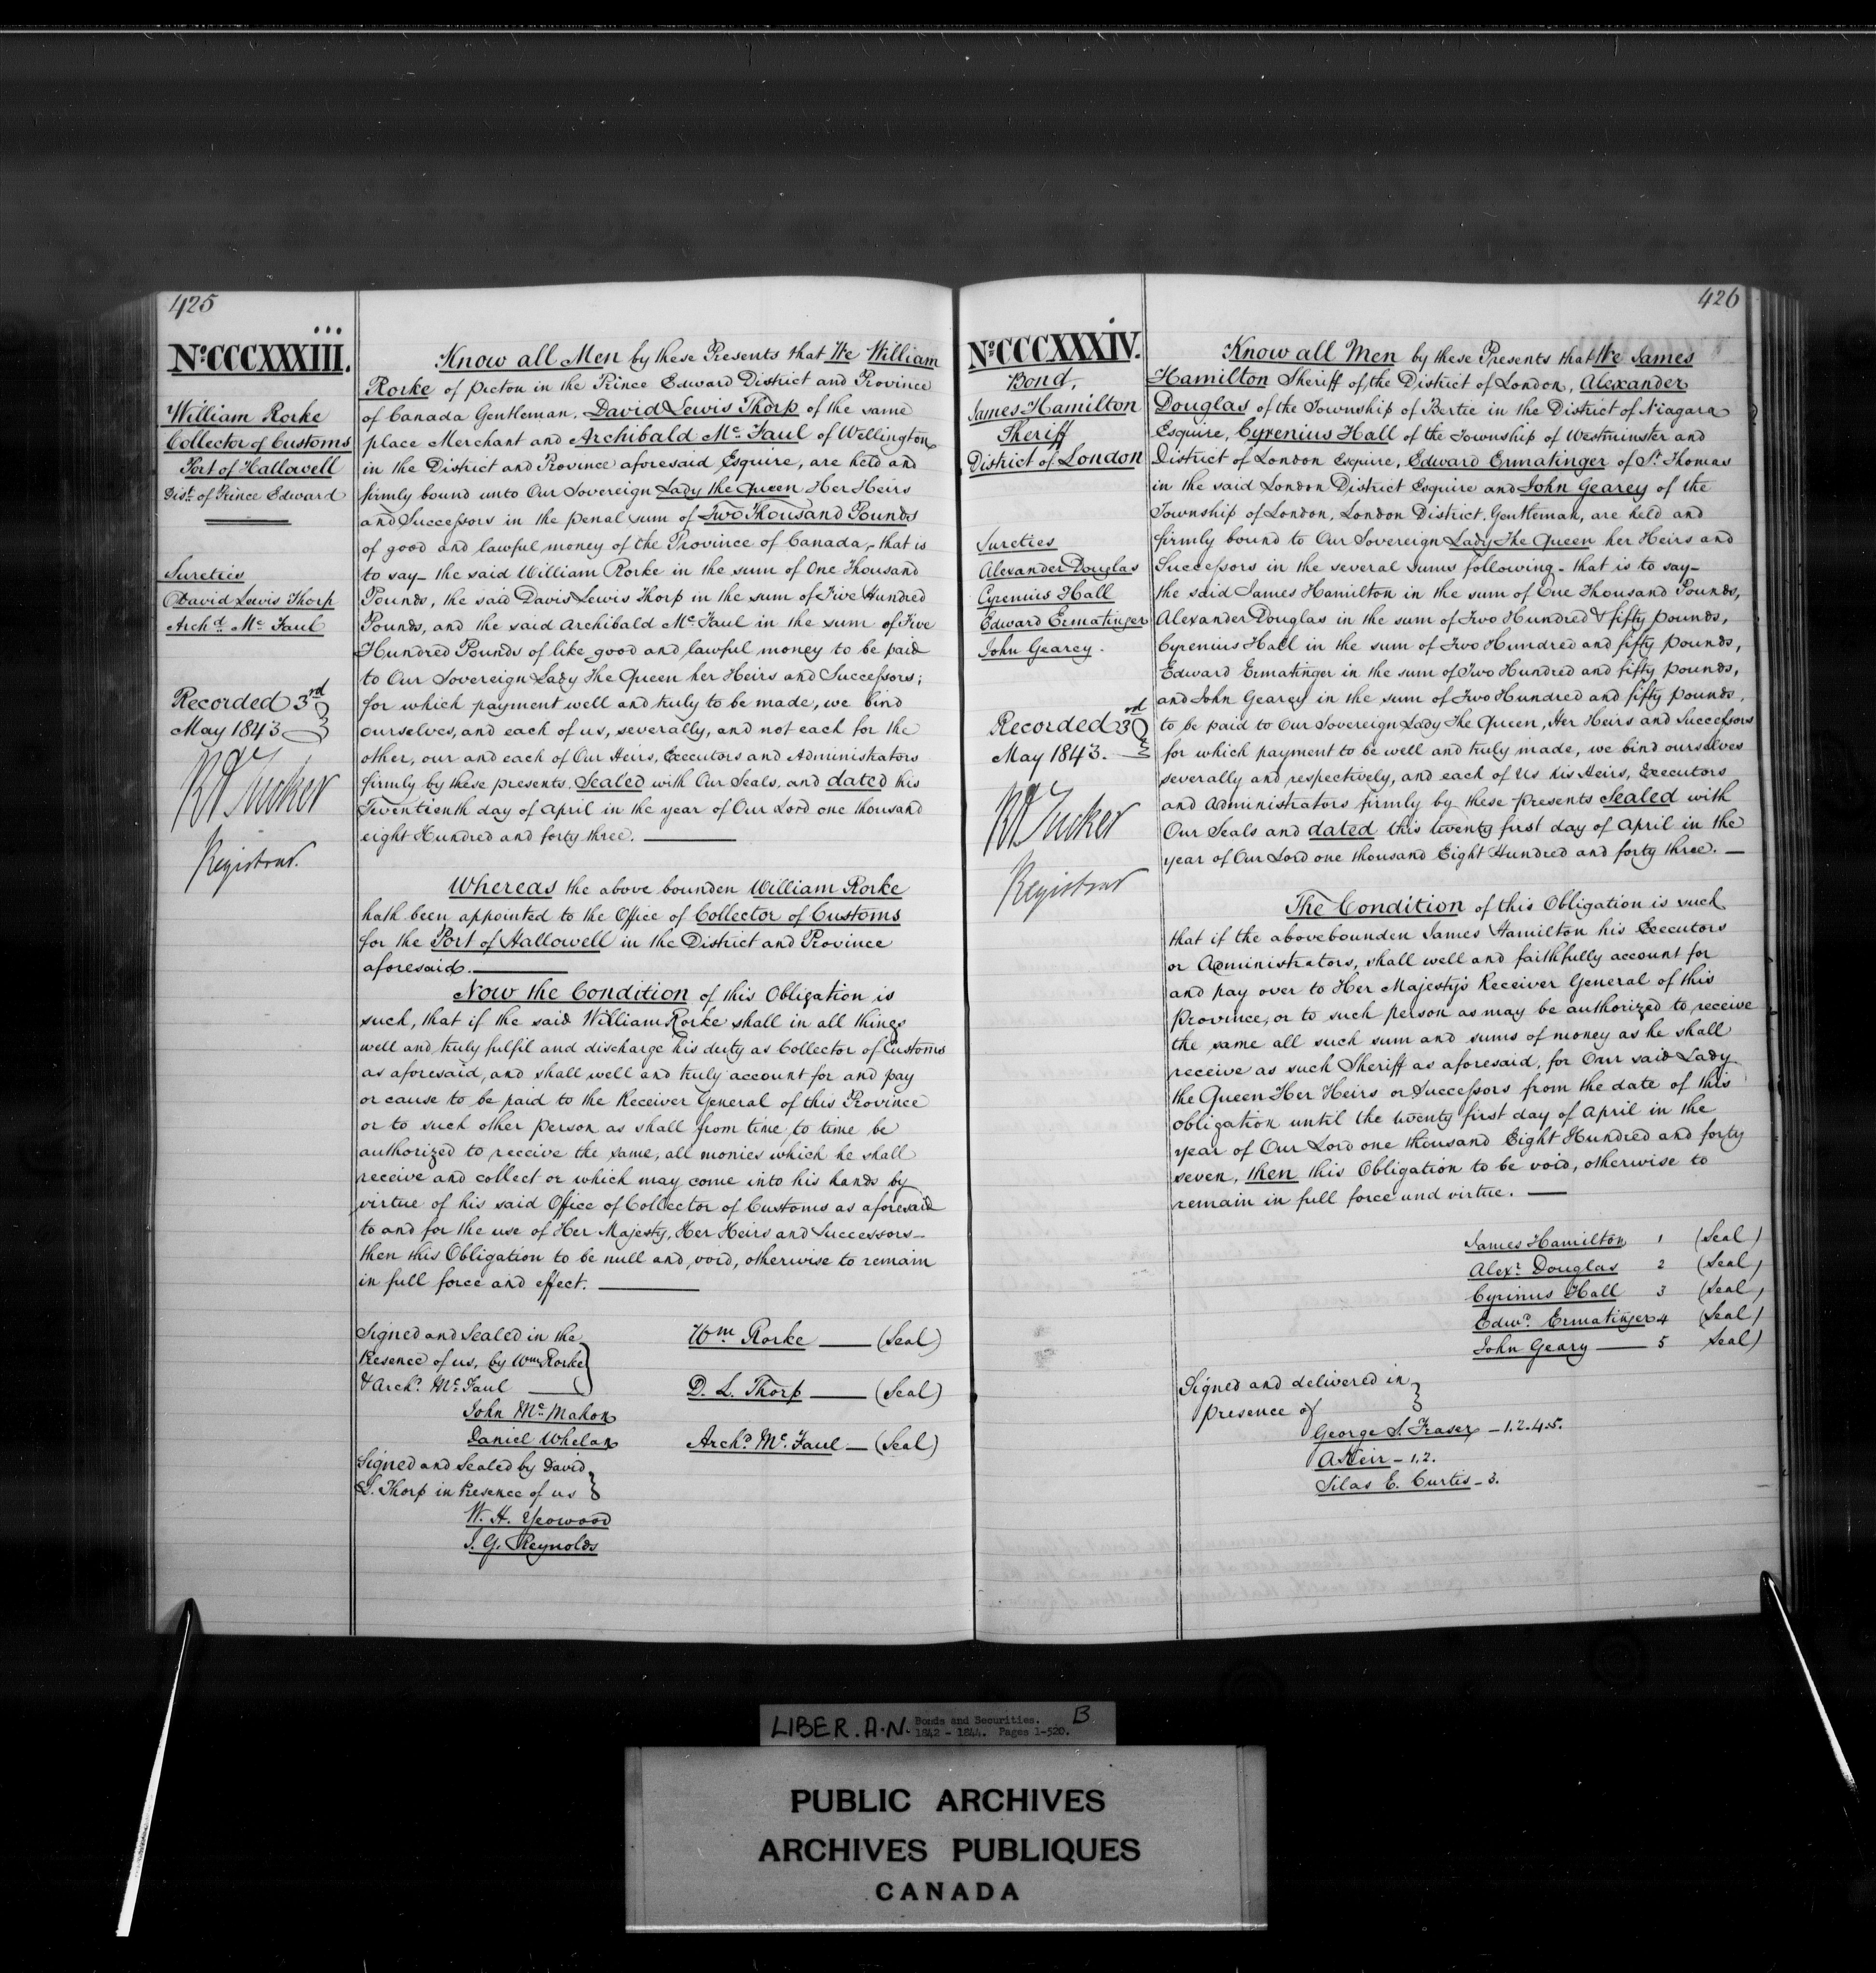 425
No. CCCXXXIII.
William Rorke
Collector of Customs
Port of Hallowell
Dist. of Prince Edward
Sureties
David Lewis Thorp
Archd. Mc Faul
Recorded 3rd
May 1843
RA Tucker
Registrar.
Know all Men by these Presents that We William
Rorke of Picton in the Prince Edward District and Province
of Canada Gentleman, David Lewis Thorp of the same
place Merchant and Archibald Mc Faul of Wellington
in the District and Province aforesaid Esquire, are held and
firmly bound unto Our Sovereign Lady the Queen Her Heirs
and Successors in the penal sum of Two Thousand Pounds
of good and lawful money of the Province of Canada, that is
to say - the said William Rorke in the sum of One Thousand
Pounds, the said Davis Lewis Thorp in the sum of Five Hundred
Pounds, and the said Archibald Mc Faul in the sum of Five
Hundred Pounds of like good and lawful money to be paid
to Our Sovereign Lady the Queen her Heirs and Successors;
for which payment well and truly to be made, we bind
ourselves, and each of us, severally, and not each for the
other, our and each of Our Heirs, Executors and Administrators
firmly by these presents. Sealed with Our Seals, and dated his
Twentienth day of April in the year of Our Lord one thousand
eight Hundred and forty three.
Whereas the above bounden William Rorke
hath been appointed to the Office of Collector of Customs
for the Port of Hallowell in the District and Province
aforesaid.
Now the Condition of this Obligation is
such, that if the said William Rorke shall in all things
well and truly fulfil and discharge his duty as Collector of Customs
as aforesaid, and shall well and truly account for and pay
or cause to be paid to the Receiver General of this Province
or to such other person as shall from time to time be
authorized to receive the same, all monies which he shall
receive and collect or which may come into his hands by
virtue of his said Office of Collector of Customs as aforesaid
to and for the use of Her Majesty, Her Heirs and Successors -
then this Obligation to be null and void, otherwise to remain
in full force and effect.
Signed and Sealed in the
Presence of us, by Wm Rorke
& Archd. Mc Faul
John Mc Mahon
Daniel Whelan
Signed and Sealed by David
L. Thorp in Presence of us
W. H. Yeowood
J. G. Reynolds
Wm Rorke (Seal)
D. L. Thorp (Seal)
Archd. Mc. Faul (Seal)
426
No. CCCXXXIV.
Bond,
James Hamilton
Sheriff
District of London
Sureties
Alexander Douglas
Cyrenius Hall
Edward Ermatinger
John Gearey.
Recorded 3rd
May 1843.
RA Tucker
Registrar
Know all Men by these Presents that We James
Hamilton Sheriff of the District of London, Alexander
Douglas of the Township of Bertie in the District of Niagara
Esquire, Cyrenius Hall of the Township of Westminster and
District of London Esquire, Edward Ermatinger of St. Thomas
in the said London District Esquire and John Gearey of the
Township of London, London District, Gentleman, are held and
firmly bound to Our Sovereign Lady The Queen her Heirs and
Successors in the several sums following - that is to say -
the said James Hamilton in the sum of One Thousand Pounds,
Alexander Douglas in the sum of Two Hundred & fifty pounds,
Cyrenius Hall in the sum of Two Hundred and fifty pounds,
Edward Ermatinger in the sum of Two Hundred and fifty pounds,
and John Gearey in the sum of Two Hundred and fifty pounds,
to be paid to Our Sovereign Lady The Queen, Her Heirs and Successors
for which payment to be well and truly made, we bind ourselves
severally and respectively, and each of Us his Heirs, Executors
and Administrators firmly by these presents Sealed with
Our Seals and dated this twenty first day of April in the
year of Our Lord one thousand Eight Hundred and forty three.
The Condition of this Obligation is such
that if the abovebounden James Hamilton his Executors
or Administrators, shall well and faithfully account for
and pay over to Her Majesty's Receiver General of this
Province, or to such person as may be authorized to receive
the same all such sum and sums of money as he shall
receive as such Sheriff as aforesaid, for Our said Lady
the Queen Her Heirs or Successors from the date of this
obligation until the twenty first day of April in the
year of Our Lord one thousand Eight Hundred and forty
seven, then this Obligation to be void, otherwise to
remain in full force and virtue.
James Hamilton 1 (Seal)
Alexr. Douglas 2 (Seal)
Cyrinus Hall 3 (Seal)
Edwd. Ermatinger 4 (Seal)
John Geary 5 Seal)
Signed and delivered in
presence of
George S. Fraser - 1.2.4.5.
A Keir - 1.2.
Silas E. Curtis - 3.
LIBER. A.N. Bonds and Securities. B
1842 - 1844. Pages 1-520.
PUBLIC ARCHIVES
ARCHIVES PUBLIQUES
CANADA